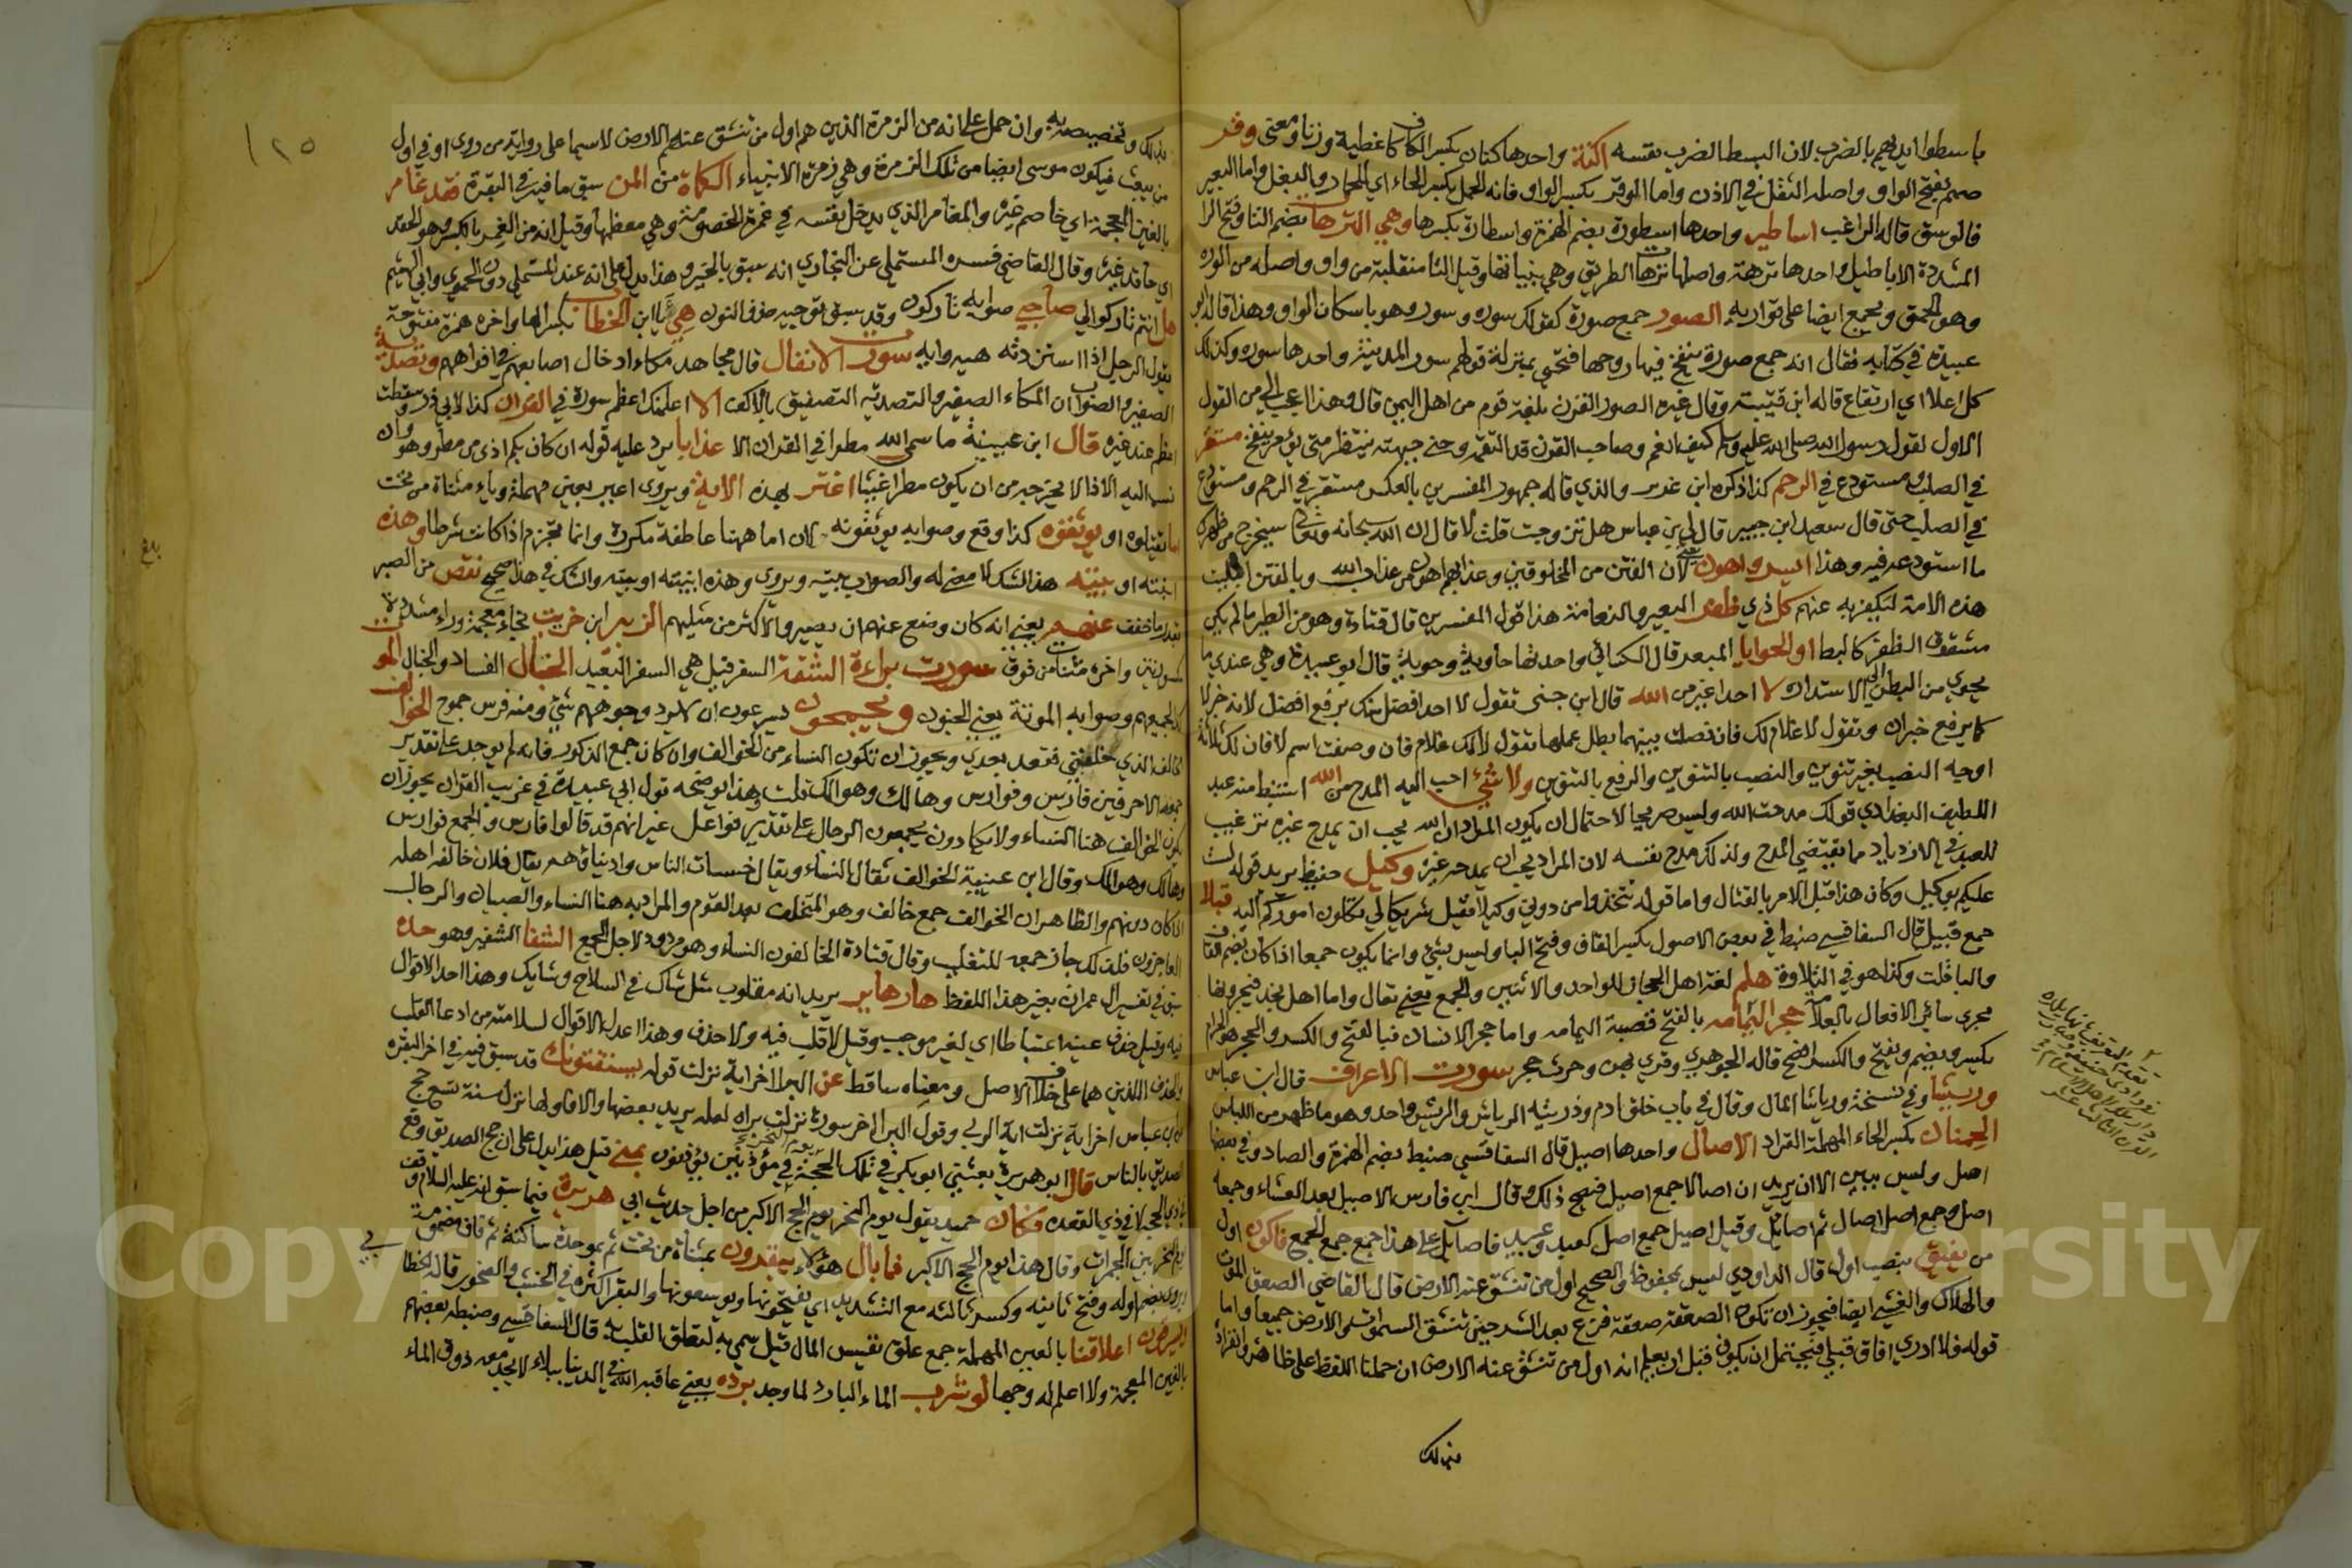 باسطوا ايديهم بالضرب لان البسط الضرب بقسه اكنة واحدها كنان بكسر الكاف كاغطية وزنا ومعنى وقر
صمم بفتح الواو واصله الثقل في الاذن واما الوقر بكسر الواو فانه الحمل بكسر الحاء اي للحمار والبغل واما البعير
فالوسق قاله الراغب اساطير واحدها اسطورة بضم الهمزة واسطارة بكسرها وهي الترهات بضم التا وفتح الرا
المشددة الاباطيل واحدها ترهة واصلها ترهات الطريق وهي بنياتها وقيل التا منقلبة من واو واصله من الوره
وهو الحمق ويجمع ايضا على تواريه الصور جمع صورة كقولك سوره وسور وهو باسكان الواو وهذا قاله ابو
عبيدة في كتابه فقال انه جمع صورة ينفخ فيها روحها فتحيى بمنزلة قولهم سور المدينة واحدها سوره وكذلك
كل اعلا اي ارتفاع قاله ابن قتيبة وقال غيره الصور القرن بلغة قوم من اهل اليمن قال وهذا اعجب الي من القول
الاول لقول رسول الله صلى الله عليه وسلم كيف انعم وصاحب القرن قد التقمه وحنى جبهته ينتظر متى يؤمر ينفخ مستقر
في الصلب ومستودع في الرحم كذا ذكره ابن غدير والذي قاله جمهور المفسرين بالعكس مستقر في الرحم ومستودع
في الصلب حتى قال سعيد ابن جبير قال لي ابن عباس هل تزوجت قلت لا قال ان الله سبحانه وتعالى سيخرج من ظهرك
ما استودعه فيه وهذا ايسر واهون يعني لان الفتن من المخلوقين وعذابهم اهون من عذاب الله وبالفتن ابتليت
هذه الامة ليكفر به عنهم كل ذي ظفر البعير والنعامة هذا قول المفسرين قال قتادة وهو من الطير ما لم يكن
مشقوق الظفر كالبط او الحوايا المبعد قال الكسائي واحدتها حاوية وحوية قال ابو عبيدة وهي عندي ما
يحوي من البطن الى الاستدارة لا احد اغير من الله قال ابن جني تقول لا احد افضل منك برفع افضل لانه خبر لا
كما يرفع خبر ان وتقول لا غلام لك فان فصلت بينهما بطل عملها تقول لا لك غلام فان وصفت اسم لا فان لك ثلاثة
اوجه النصب بغير تنوين والنصب بالتنوين والرفع بالتنوين ولا شيء احب اليه المدح من الله استنبط منه عبد
اللطيف البغدادي قولك مدحت الله وليس صريحا لاحتمال ان يكون المراد ان الله يحب ان يمدح غيره ترغيب
للعبد في الازدياد مما يقتضي المدح ولذلك مدح نفسه لان المراد يحب ان يمدحه غيره وكيل حفيظ يريد قوله لست
عليكم بوكيل وكان هذا قبل الامر بالقتال واما قوله تتخذوا من دوني وكيلا فقيل شريكا لي تكلون اموركم اليه قبلا
جمع قبيل قال السفاقسي ضبط في بعض الاصول بكسر القاف وفتح الباء وليس بشيء وانما يكون جمعا اذا كان بضم القاف
والبا قلت وكذا هو في التلاوة هلم لغة اهل الحجاز للواحد والاثنين والجمع يعني تعال واما اهل نجد فيجرونها
مجرى سائر الافعال بالعلامة حجر اليمامه بالفتح قصبة اليمامه واما حجر الانسان فبالفتح والكسر والحجر الحرام
بكسر ويضم ويفتح والكسر افصح قاله الجوهري وقري بهن وحرث حجر سورت الاعراف قال ابن عباس
وريشا وفي نسخة ورياشا المال وقال في باب خلق ادم وذريته الرياش والريش واحد وهو ما ظهر من اللباس
الحمنان بكسر الحاء المهملة القراد الاصال واحدها اصيل قال السفاقسي ضبط بضم الهمزة والصاد وفي بعضها
اصل وليس ببين الا ان يريد ان اصالا جمع اصيل فيصح ذلك وقال ابن فارس الاصيل بعد العشاء وجمعه
اصل وجمع اصل اصال ثم اصائل وقيل اصيل جمع اصل كعبد وعبيد فاصايل على هذا جمع جمع الجمع فاكون اول
من يفيق بنصب اول قال الداودي ليس بمحفوظ والصحيح اول من تنشق عنه الارض قال القاضي الصعق الموت
والهلاك والغشي ايضا فيجوز ان تكون الصعقة صعقة فزع بعد النشر حين تنشق السموات والارض جميعا واما
قوله فلا ادري افاق قبلي فيحتمل ان يكون قبل ان يعلم انه اول من تنشق عنه الارض ان حملنا اللفظ على ظاهره وانفراد
بذلك
بذلك وتخصيصه به وان حمل على انه من الزمرة الذين هم اول من تنشق عنهم الارض لاسيما على رواية من روى او في اول
من يبعث فيكون موسى ايضا من تلك الزمرة وهي زمرة الانبياء الكماة من المن سبق ما فيه في البقرة فقد غامر
بالغين المعجمة اي خاصم غيره والمغامر الذي يدخل بنفسه في غمرة الخصومة وهي معظمها وقيل انه من الغمر بالكسر وهو الحقد
اي حاقد غيره وقال القاضي فسره المستملي عن البخاري انه سبق بالخير وهذا يدل على انه عند المستملي دون الحموي وابي الهيثم
هل انتم تاركوا لي صاحبي صوابه تاركون وقد سبق توجيه حذف النون هيء يا ابن الخطاب بكسر الها واخره همزة مفتوحة
يقول الرجل اذا استزدته هيه وايه سورت الانفال قال مجاهد مكاء ادخال اصابعهم في افواههم وتصدية
الصفير والصواب ان المكاء الصفير والتصدية التصفيق بالاكف الا اعلمك اعظم سورة في القران كذا لابي ذر وسقطت
اعظم عند غيره قال ابن عيينة ما سمى الله مطرا في القران الا عذابا يرد عليه قوله ان كان بكم اذى من مطر وهو وان
نسب اليه الاذا لا يخرجه من ان يكون مطرا غيثا اغتر بهذه الاية ويروى اعير بعين مهملة وياء مثناة من تحت
اما يقتلوه او يوثقوه كذا وقع وصوابه يوثقونه لان اما ههنا عاطفة مكررة وانما تجزم اذا كانت شرطا وهذه
ابنته او بيته هذا الشك لا معنى له والصواب بيته ويروى وهذه ابنيته او بيته والشك في هذا صحيح نقص من الصبر
بقدر ما خفف عنهم يعني انه كان وضع عنهم ان يصبروا لاكثر من مثليهم الزبير ابن خريت بخاء معجمة وراء مشددة
مكسورتين واخره مثناة من فوق سورت براءة الشقة السفر قيل هي السفر البعيد الخبال الفساد والخبال الموت
كذا لجميعهم وصوابه الموتة يعني الجنون ويجمحون يسرعون ان لا يرد وجوههم شيء ومنه فرس جموح الخوالف
الخالف الذي خلفني فقعد بعدي ويجوز ان تكون النساء من الخوالف وان كان جمع الذكور فانه لم يوجد على تقدير
جمعه الا حرفين فارس وفوارس وهالك وهوالك قلت وهذا يوضحه قول ابي عبيدة في غريب القران يجوز ان
يكون الخوالف هنا النساء ولا يكادون يجمعون الرجال على تقدير فواعل غير انهم قد قالوا فارس والجمع فوارس
وهالك وهوالك وقال ابن عيينة الخوالف يقال للنساء ويقال خسسات الناس وادنياؤهم يقال فلان خالفه اهله
اذا كان دونهم والظاهر ان الخوالف جمع خالف وهو المتخلف بعد القوم والمراد به هنا النساء والصبيان والرجال
العاجزون فلذلك جاز جمعه للتغليب وقال قتادة الخالفون النساء وهو مردود لاجل الجمع الشفا الشفير وهو حده
سبق في تفسير ال عمران بغير هذا اللفظ هار هاير يريد انه مقلوب مثل شاك في السلاح وشايك وهذا احد الاقوال
فيه وقيل حذف عينه اعتباطا اي لغير موجب وقيل لا قلب فيه ولا حذف وهذا اعدل الاقوال لسلامته من ادعا القلب
والحذف اللذين هما على خلاف الاصل ومعناه ساقط عن البرا اخر اية نزلت قوله يستفتونك قد سبق فيه في اخر البقره
ان ابن عباس اخر اية نزلت اية الربى وقول البرا اخر سورة نزلت براه لعله يريد بعضها والا فاولها نزل سنة تسع حج
الصديق بالناس قال ابو هريرة بعثني ابو بكر في تلك الحجة في مؤذنين يوم النحر يؤذنون بمنى قيل هذا يدل على ان حج الصديق وقع
في ذي الحجة لا في ذي القعده فكان حميد يقول يوم النحر يوم الحج الاكبر من اجل حديث ابي هريرة فيما سبق انه عليه السلام وقف
يوم النحر بين الجمرات وقال هذا يوم الحج الاكبر فما بال هؤلاء يبقرون بمثناة من تحت ثم بموحدة ساكنة ثم قاف مضمومة
ويروى بضم اوله وفتح ثانيه وكسر ثالثه مع التشديد اي يفتحونها ويوسعونها والبقر اكثره في الخشب والصخور قاله الخطابي
اعلاقنا بالعين المهملة جمع علق نفيس المال قيل سمي به لتعلق القلب به قال السفاقسي وضبطه بعضهم
بالغين المعجمة ولا اعلم له وجها لو شرب الماء البارد لما وجد برده يعني عاقبه الله في الدنيا ببلاء لا يجد معه ذوق الماء
١٢٥
بلغ